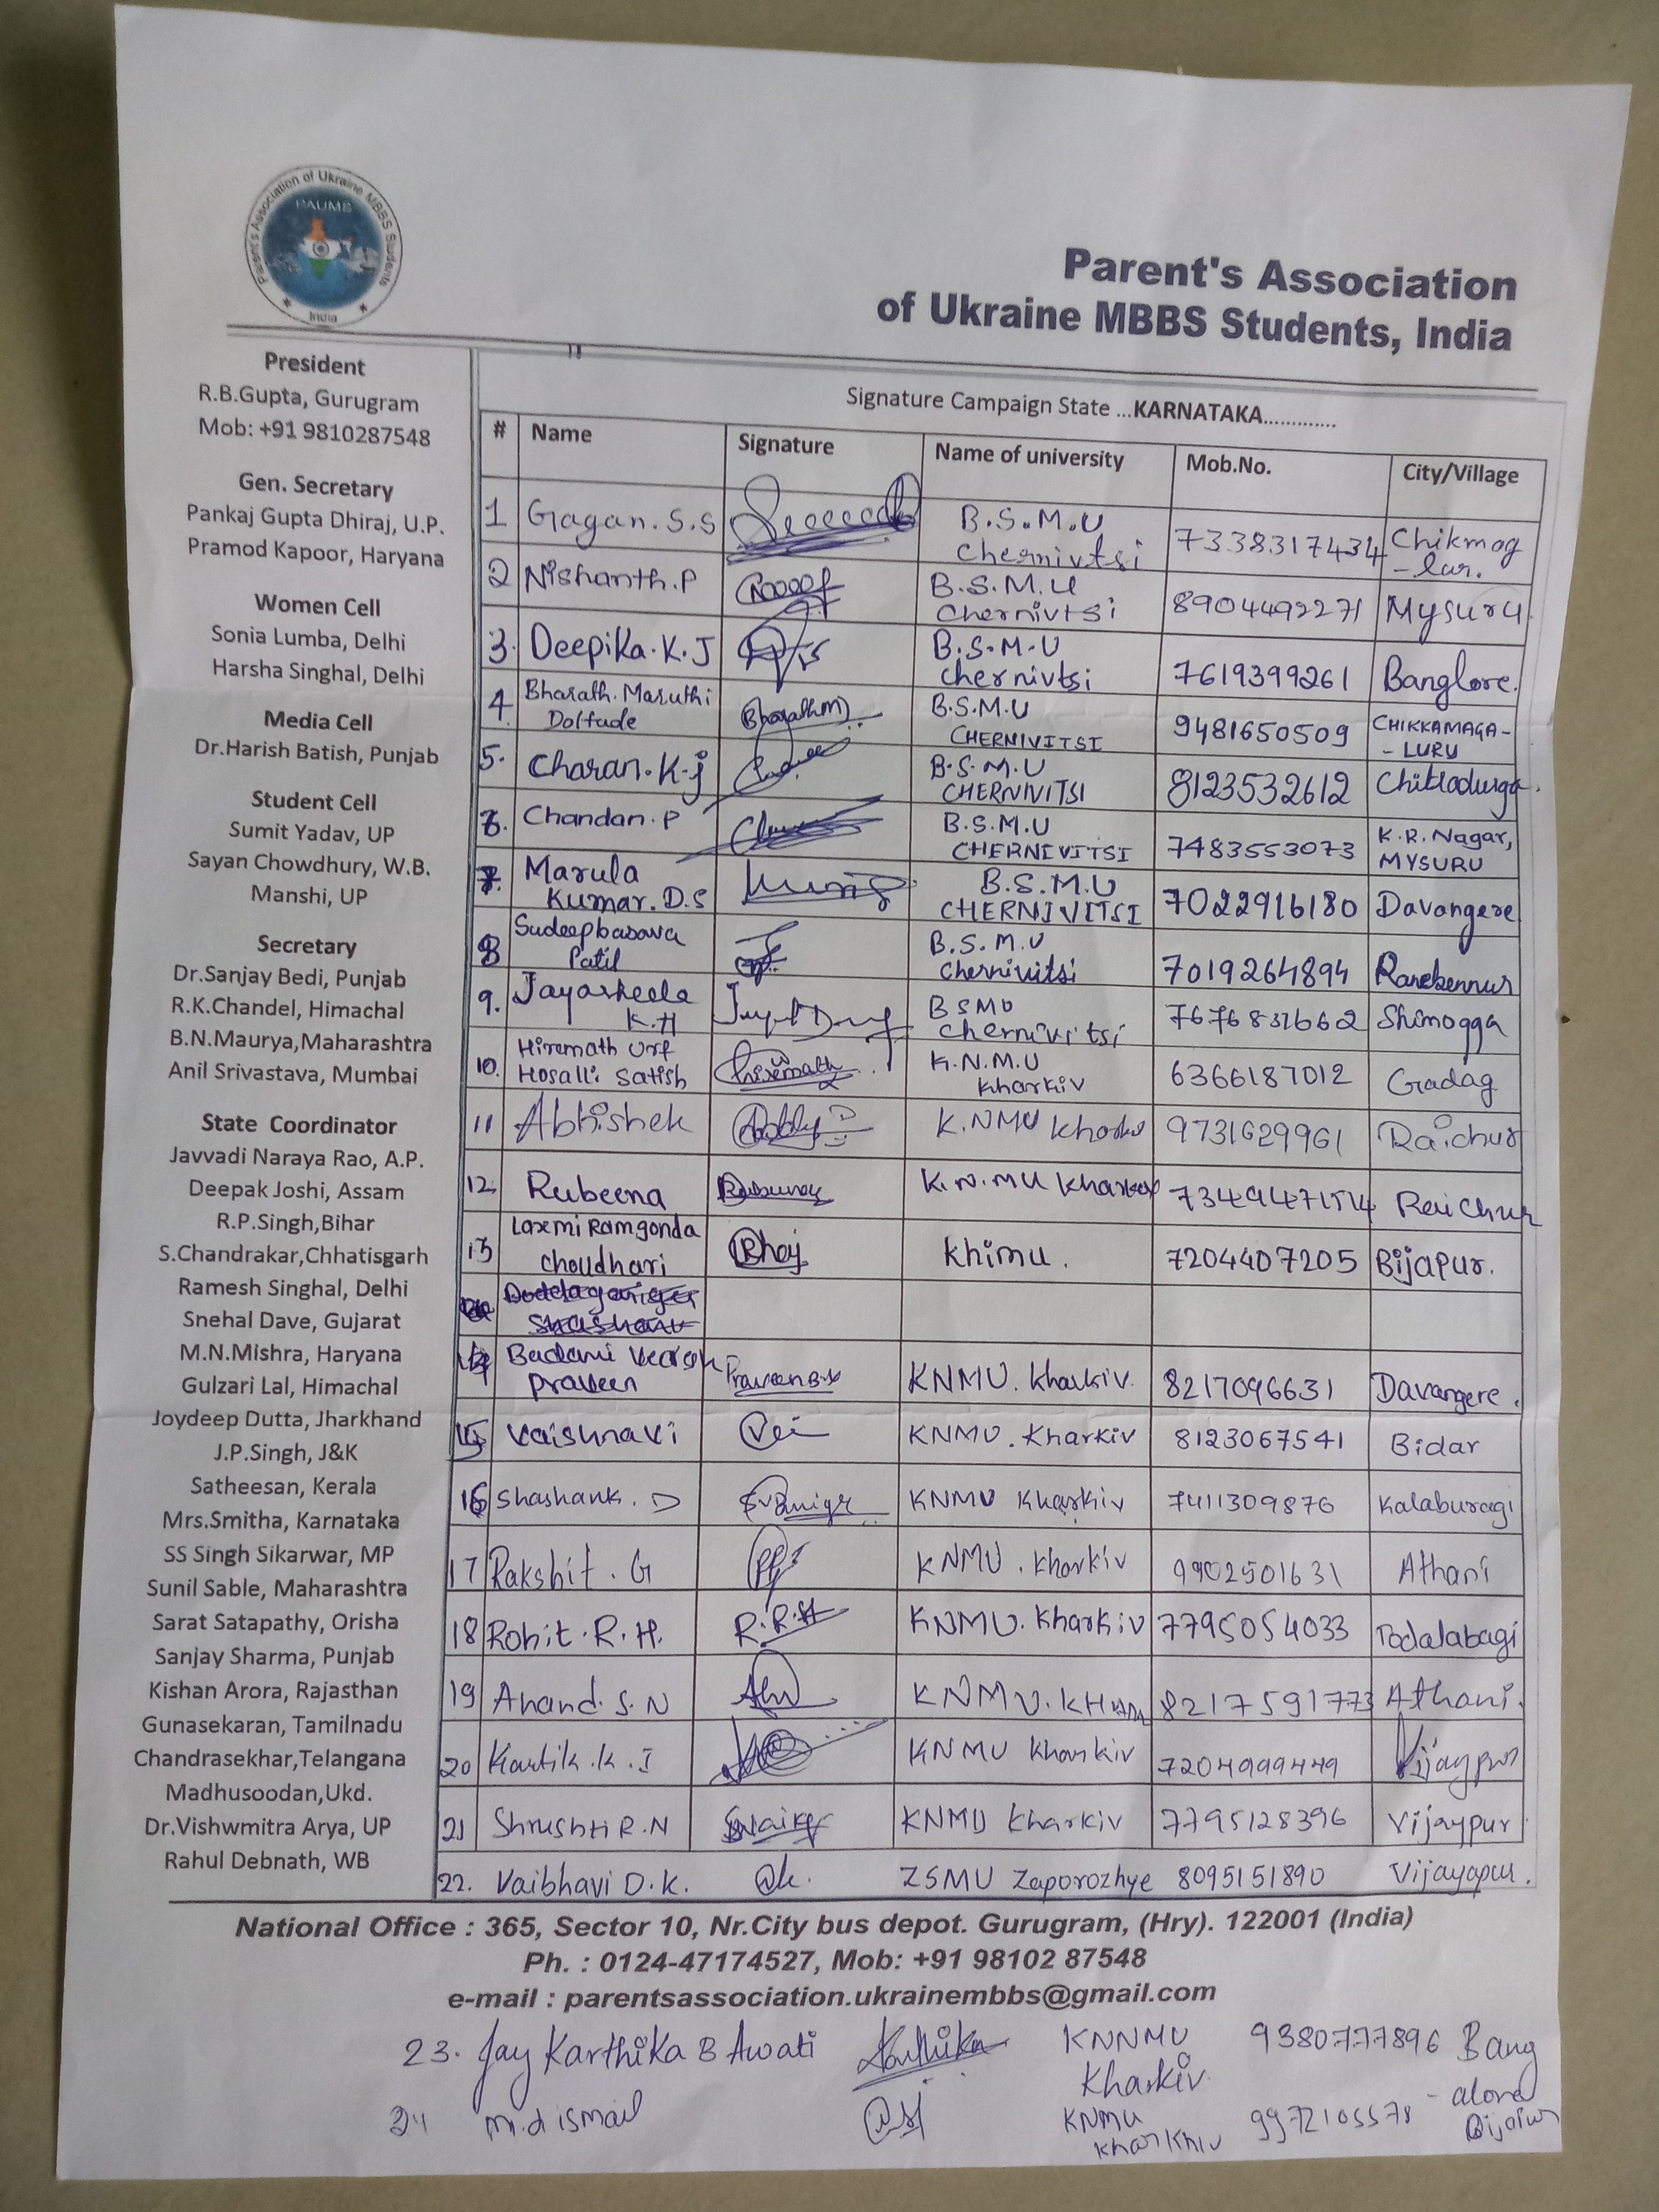 Parent's Association of Ukraine MBBS Students
PAUMS
India
Parent's Association
of Ukraine MBBS Students, India
President
R.B.Gupta, Gurugram
Mob: +91 9810287548
Gen. Secretary
Pankaj Gupta Dhiraj, U.P.
Pramod Kapoor, Haryana
Women Cell
Sonia Lumba, Delhi
Harsha Singhal, Delhi
Media Cell
Dr.Harish Batish, Punjab
Student Cell
Sumit Yadav, UP
Sayan Chowdhury, W.B.
Manshi, UP
Secretary
Dr.Sanjay Bedi, Punjab
R.K.Chandel, Himachal
B.N.Maurya,Maharashtra
Anil Srivastava, Mumbai
State Coordinator
Javvadi Naraya Rao, A.P.
Deepak Joshi, Assam
R.P.Singh,Bihar
S.Chandrakar,Chhatisgarh
Ramesh Singhal, Delhi
Snehal Dave, Gujarat
M.N.Mishra, Haryana
Gulzari Lal, Himachal
Joydeep Dutta, Jharkhand
J.P.Singh, J&K
Satheesan, Kerala
Mrs.Smitha, Karnataka
SS Singh Sikarwar, MP
Sunil Sable, Maharashtra
Sarat Satapathy, Orisha
Sanjay Sharma, Punjab
Kishan Arora, Rajasthan
Gunasekaran, Tamilnadu
Chandrasekhar,Telangana
Madhusoodan,Ukd.
Dr.Vishwmitra Arya, UP
Rahul Debnath, WB
Signature Campaign State ...KARNATAKA.............
# Name Signature Name of university Mob.No. City/Village
1 Gagan.S.S B.S.M.U Chernivtsi 7338317434 Chikmog-lur.
2 Nishanth.P B.S.M.U Chernivtsi 8904492271 Mysuru
3. Deepika.K.J B.S.M.U chernivtsi 7619399261 Banglore.
4. Bharath.Maruthi Doltade Bharath(M) B.S.M.U CHERNIVITSI 9481650509 CHIKKAMAGA-LURU
5. Charan.K.j B.S.M.U CHERNIVITSI 8123532612 Chitladurga.
6. Chandan.P B.S.M.U CHERNIVITSI 7483553073 K.R.Nagar, MYSURU
7. Marula Kumar.D.S B.S.M.U CHERNIVITSI 7022916180 Davangere
8 Sudeepbasava Patil B.S.M.U Chernivitsi 7019264894 Ranebennur
9. Jayasheela K.H BSMU Chernivitsi 7676831662 Shimogga
10. Hiremath Urf Hosalli Satish Hiremath K.N.M.U Kharkiv 6366187012 Gadag
11 Abhishek K.NMU 9731629961 Raichur
12 Rubeena K.N.MU 7349471514 Raichur
13 Laxmi Ramgonda Choudhari khimu. 7204407205 Bijapur.
14 Badami Praveen Praveen KNMU. Kharkiv. 8217096631 Davangere.
15 Vaishnavi KNMU. Kharkiv 8123067541 Bidar
16 Shashank. D KNMU Kharkiv 7411309876 Kalaburagi
17 Rakshit. G KNMU. Kharkiv 9902501631 Athani
18 Rohit.R.H. R.R.H KNMU. Kharkiv 7795054033 Todalabagi
19 Anand.S.N KNMU. 8217591773 Athani.
20 Kartik.K.I KNMU Kharkiv 7204999449 Vijaypur
21 Shrushti R.N KNMU Kharkiv 7795128396 Vijaypur
22. Vaibhavi D.K. ZSMU Zaporozhye 8095151890 Vijayapur.
National Office : 365, Sector 10, Nr.City bus depot. Gurugram, (Hry). 122001 (India)
Ph. : 0124-47174527, Mob: +91 98102 87548
e-mail : parentsassociation.ukrainembbs@gmail.com
23. Jay Karthika B Awati Karthika KNNMU Kharkiv. 9380777896 Bang-alore
24 M.d ismail KNMU Kharkhiv 9972105578